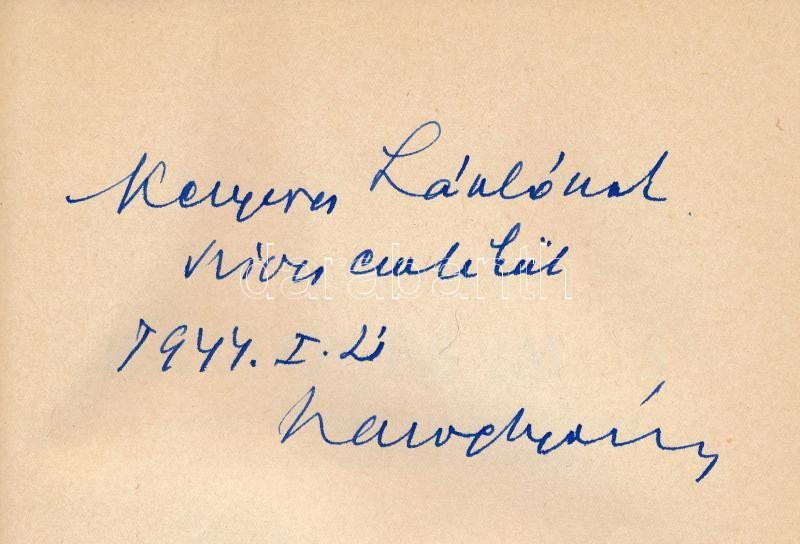 Kenyeres Lászlónak
szives emlékül
1944. I. 21
darabanth